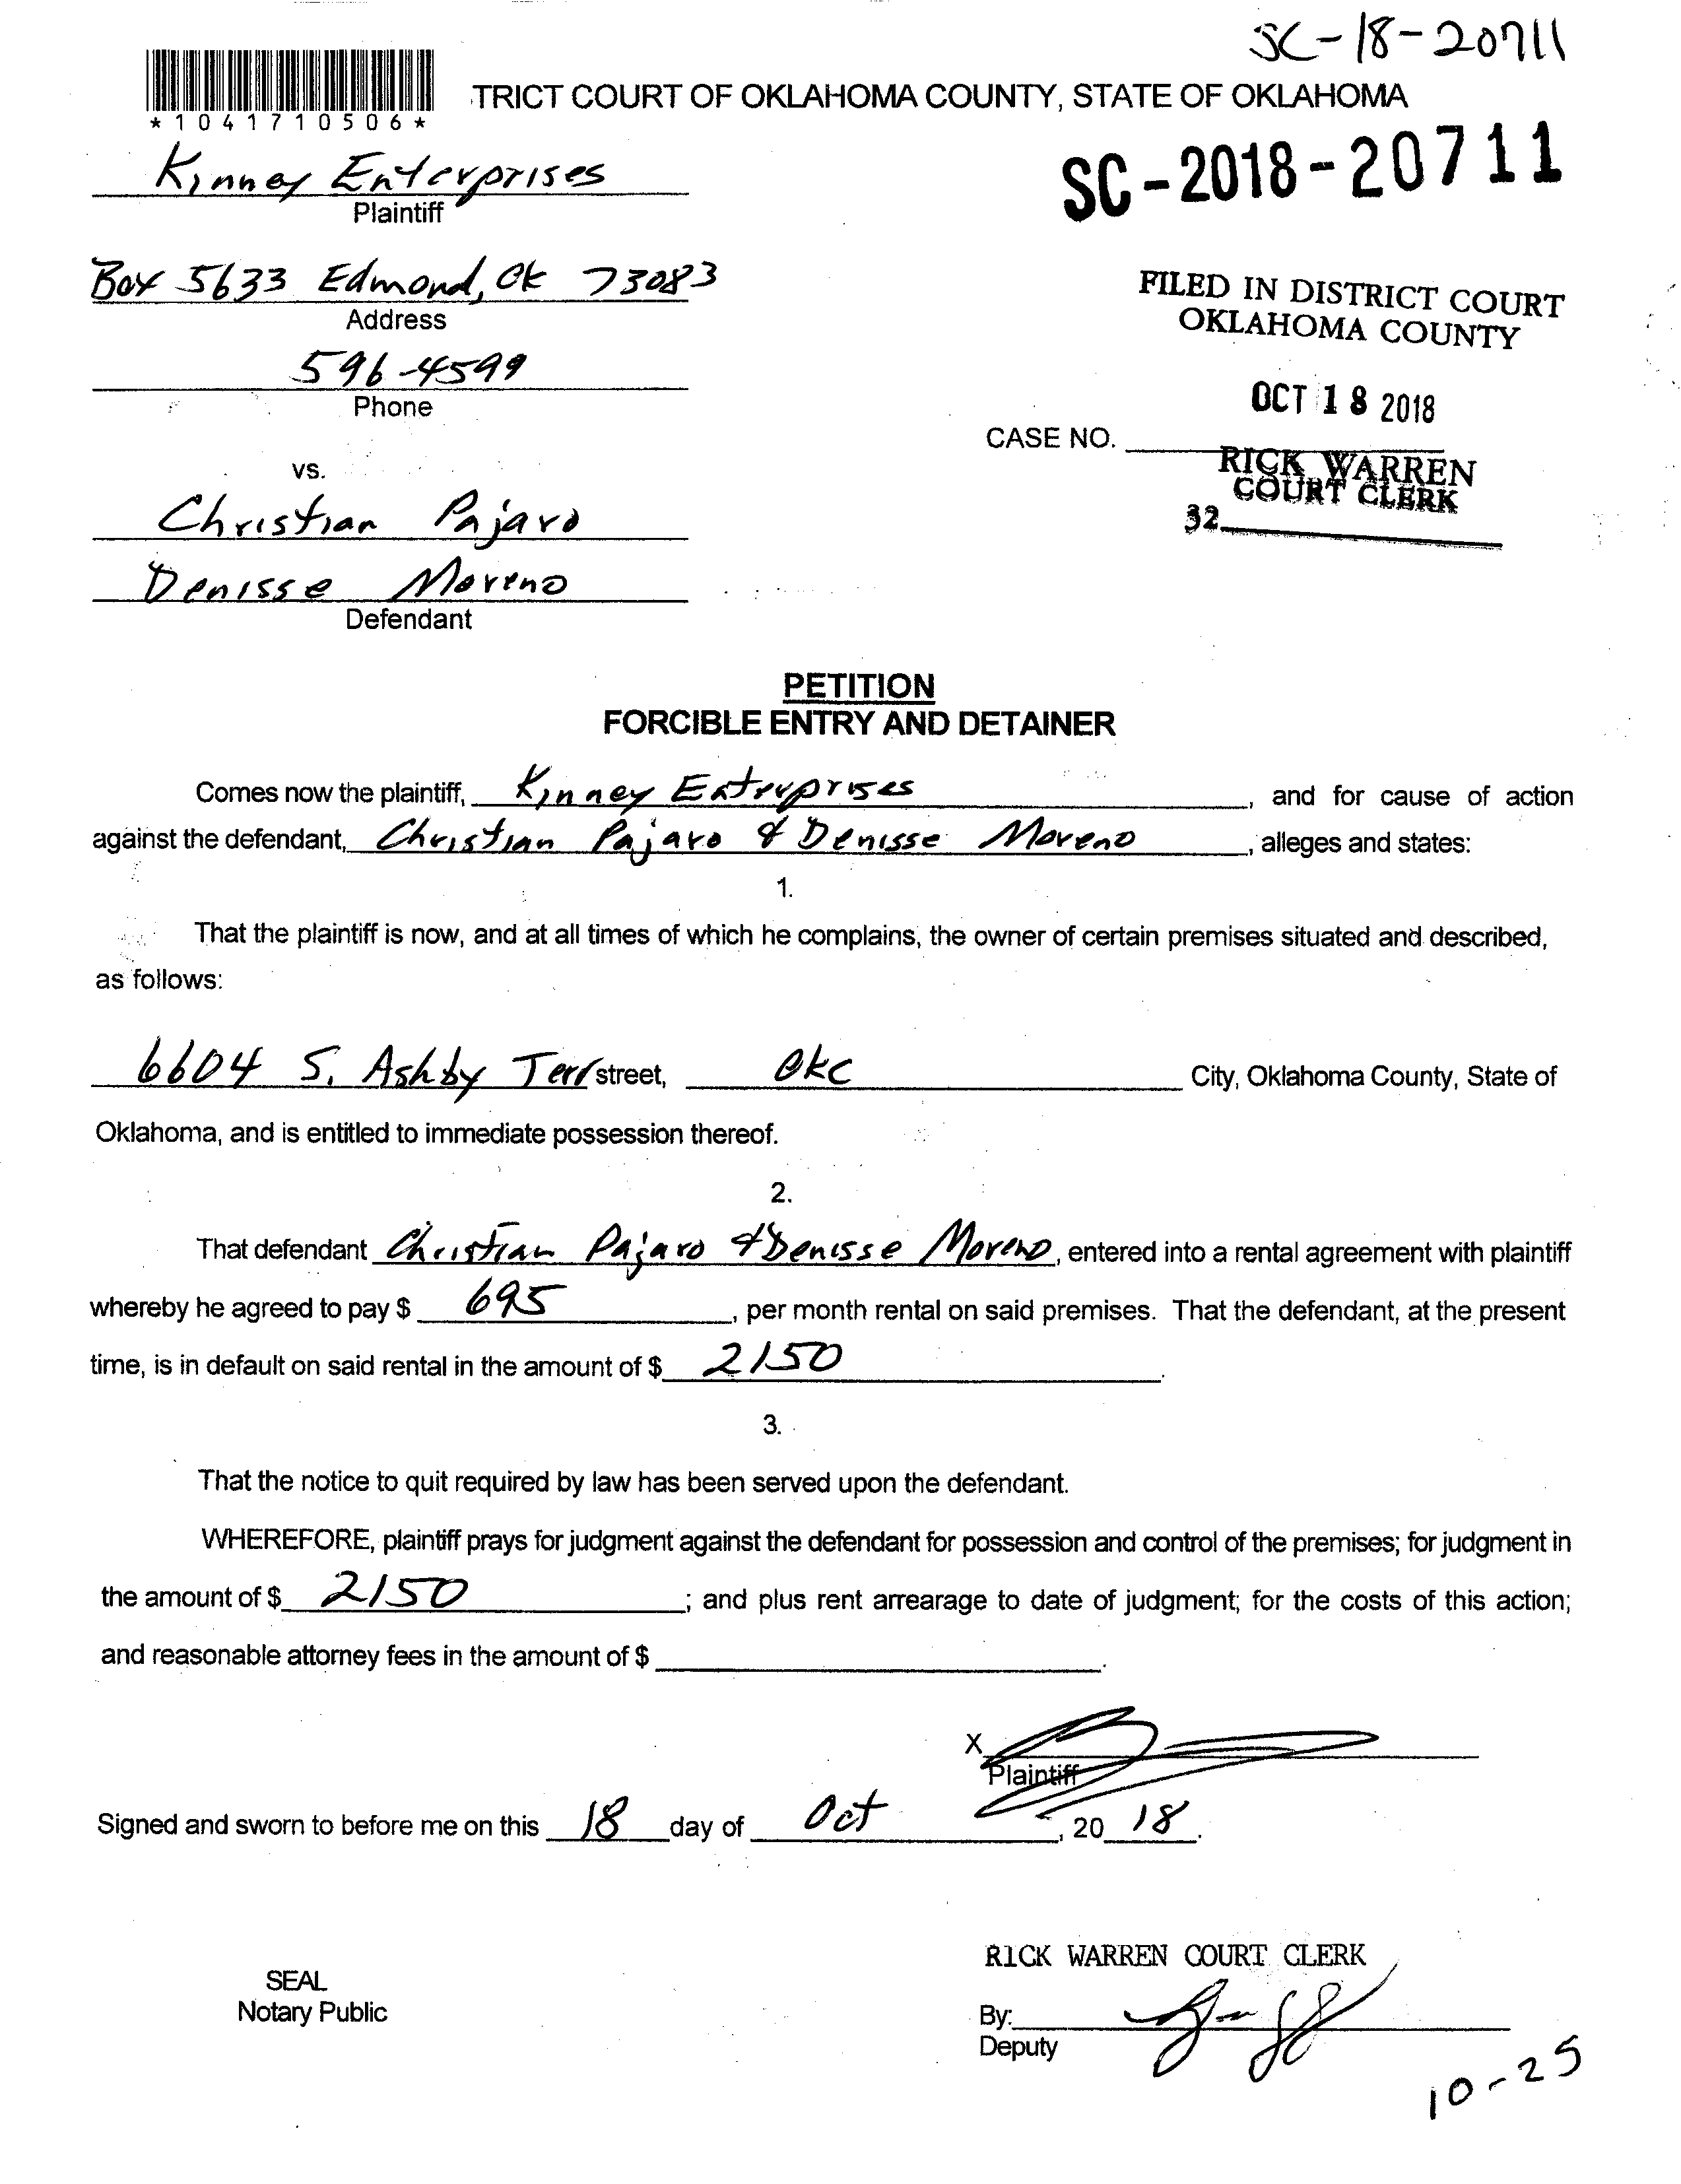 SC-18-20711
TRICT COURT OF OKLAHOMA COUNTY, STATE OF OKLAHOMA
*1041710506*
SC-2018-20711
Kinney Enterprises
Plaintiff
Box 5633 Edmond, Ok 73083
Address
FILED IN DISTRICT COURT
OKLAHOMA COUNTY
596-4599
Phone
OCT 18 2018
CASE NO.
RICK WARREN
COURT CLERK
32
vs.
Christian Pajaro
Denisse Moreno
Defendant
PETITION
FORCIBLE ENTRY AND DETAINER
Comes now the plaintiff, Kinney Enterprises, and for cause of action
against the defendant, Christian Pajaro & Denisse Moreno, alleges and states:
1.
That the plaintiff is now, and at all times of which he complains, the owner of certain premises situated and described,
as follows:
6604 S. Ashby Terr street, OKC City, Oklahoma County, State of
Oklahoma, and is entitled to immediate possession thereof.
2.
That defendant Christian Pajaro & Denisse Moreno, entered into a rental agreement with plaintiff
whereby he agreed to pay $ 695, per month rental on said premises. That the defendant, at the present
time, is in default on said rental in the amount of $ 2150.
3.
That the notice to quit required by law has been served upon the defendant.
WHEREFORE, plaintiff prays for judgment against the defendant for possession and control of the premises; for judgment in
the amount of $ 2150; and plus rent arrearage to date of judgment; for the costs of this action;
and reasonable attorney fees in the amount of $ .
X
Plaintiff
Signed and sworn to before me on this 18 day of Oct, 20 18.
RICK WARREN COURT CLERK
SEAL
Notary Public
By:
Deputy
10-25